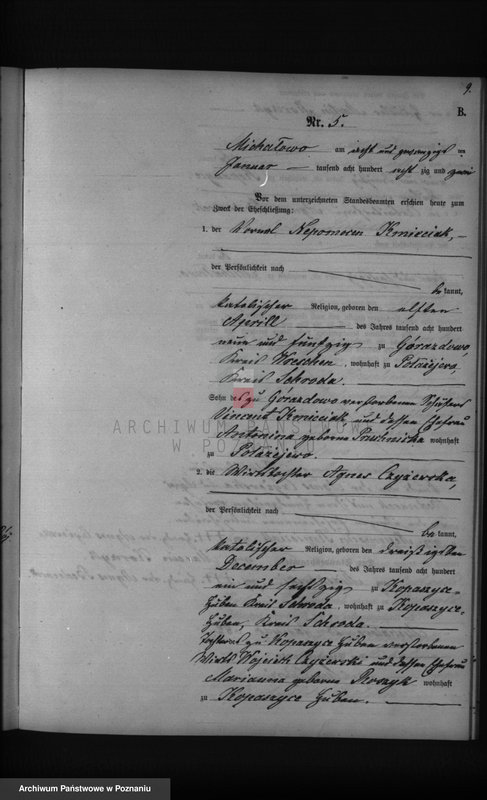 9.
B.
Nr. 5.
Michałowo am acht und zwanzigst ten
Januar tausend acht hundert acht zig und zwei
Vor dem unterzeichneten Standesbeamten erschien heute zum
Zweck der Eheschließung:
1. der Nepomucen Kmieciak,
der Persönlichkeit nach
be kannt,
katolischer Religion, geboren den elften
Aprill des Jahres tausend acht hundert
neun und fünfzig zu Górazdowo,
Kreis Wreschen, wohnhaft zu Połażejewo,
Kreis Schroda.
Sohn des zu Górazdowo verstorbenen
Vincent Kmieciak und dessen Ehefrau
Antonina geborne wohnhaft
zu Połażejewo.
2. die Wirthstochter Agnes Czyżewska,
der Persönlichkeit nach
be kannt,
katolischer Religion, geboren den dreißigsten
December des Jahres tausend acht hundert
ein und sechszig zu Kopaszyce-
Huben Kreis Schroda, wohnhaft zu Kopaszyce-
Huben, Kreis Schroda.
Tochter des zu Kopaszyce Huben verstorbenen
Wirths Wojciech Czyżewski und dessen Ehefrau
Marianna geborne wohnhaft
zu Kopaszyce Huben.
ARCHIWUM PAŃSTWOWE
W POZNANIU
Archiwum Państwowe w Poznaniu